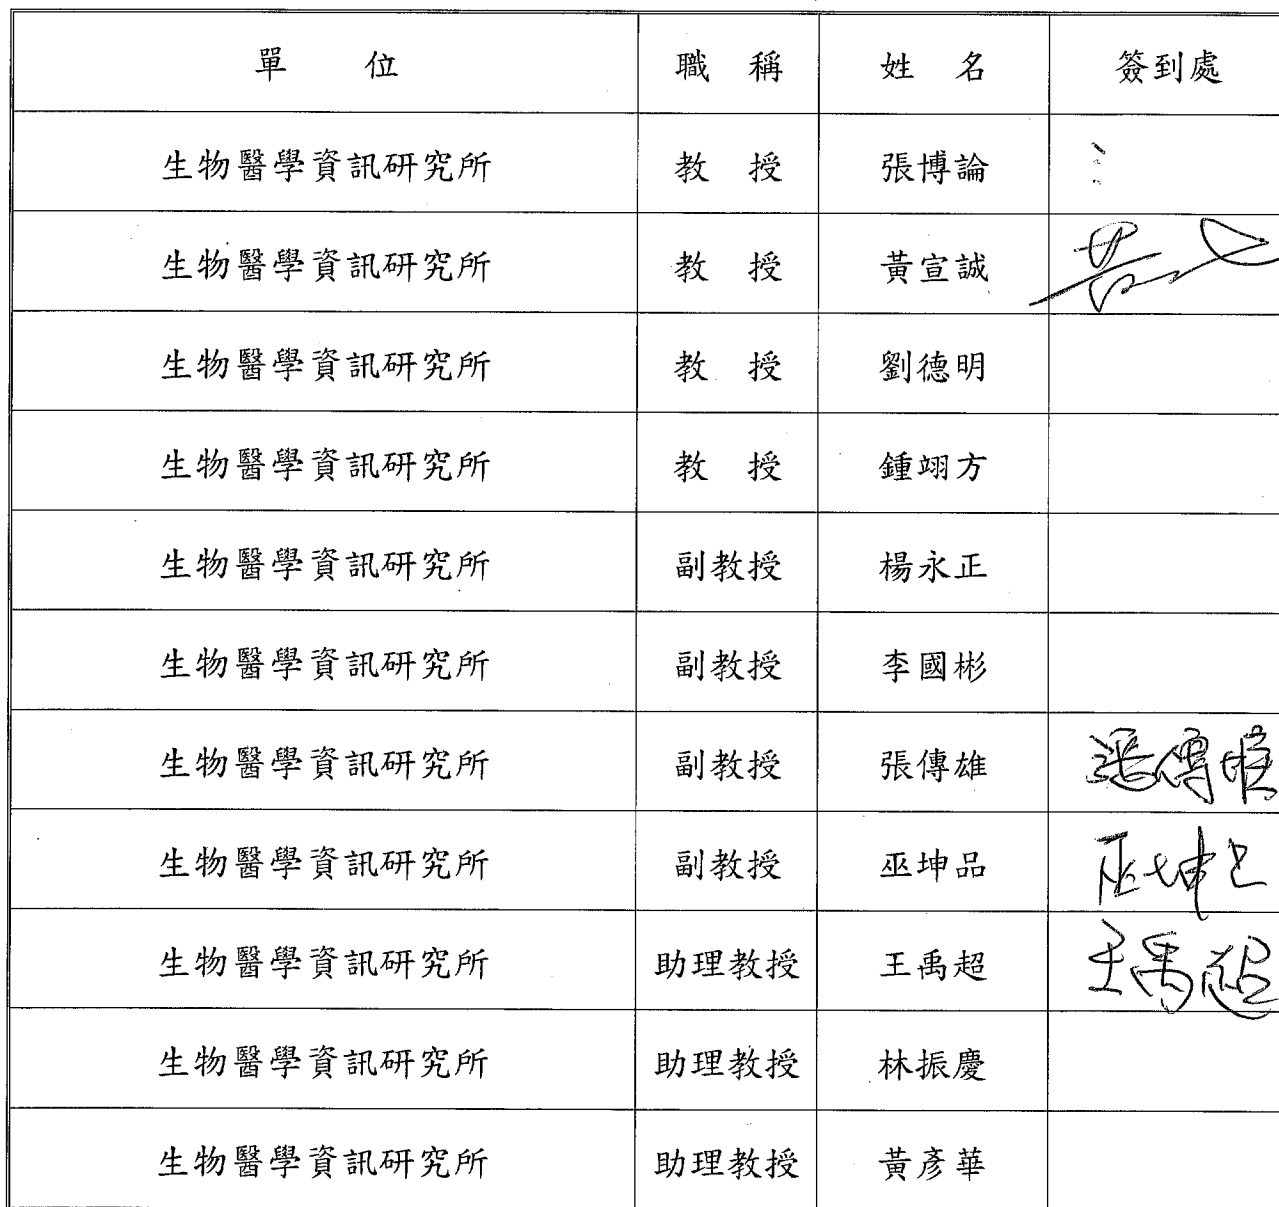 單 位 職 稱 姓 名 簽到處
生物醫學資訊研究所 教 授 張博論
生物醫學資訊研究所 教 授 黃宣誠
生物醫學資訊研究所 教 授 劉德明
生物醫學資訊研究所 教 授 鍾翊方
生物醫學資訊研究所 副教授 楊永正
生物醫學資訊研究所 副教授 李國彬
生物醫學資訊研究所 副教授 張傳雄 張傳雄
生物醫學資訊研究所 副教授 巫坤品 巫坤品
生物醫學資訊研究所 助理教授 王禹超 王禹超
生物醫學資訊研究所 助理教授 林振慶
生物醫學資訊研究所 助理教授 黃彥華